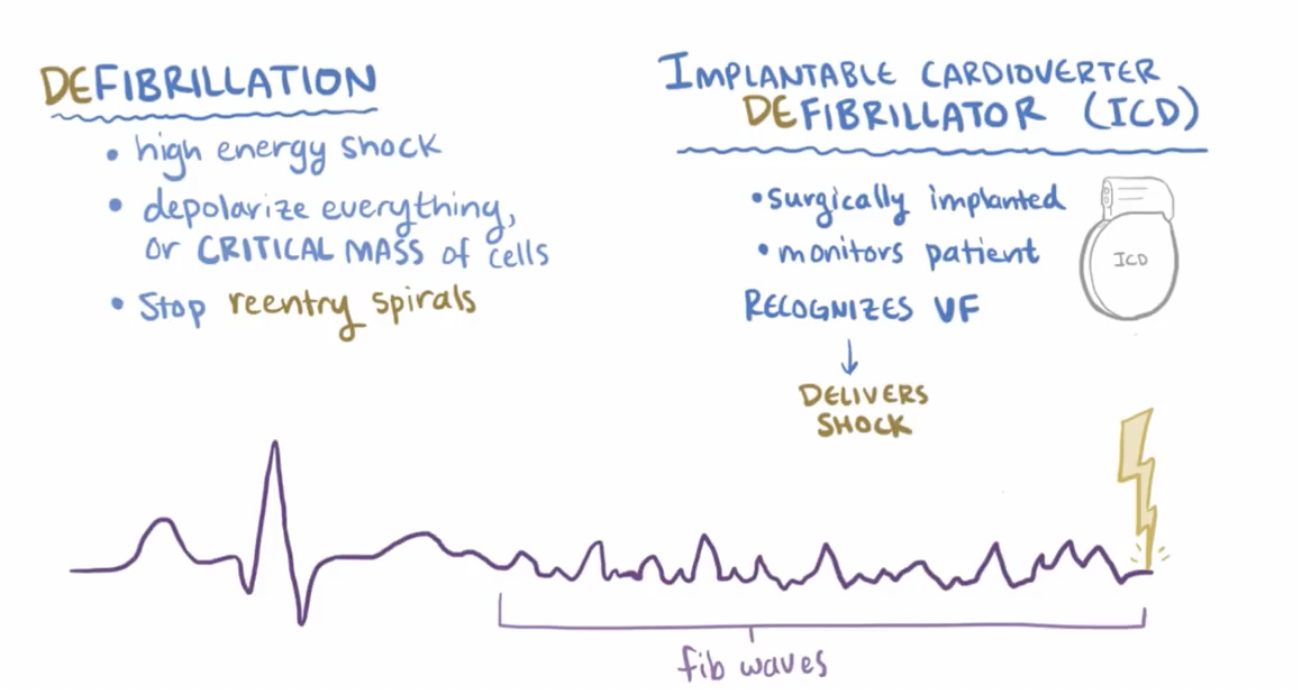 DEFIBRILLATION
• high energy shock
• depolarize everything,
or CRITICAL MASS of cells
• Stop reentry spirals
IMPLANTABLE CARDIOVERTER
DEFIBRILLATOR (ICD)
• surgically implanted
• monitors patient
RECOGNIZES VF
↓
DELIVERS
SHOCK
ICD
fib waves